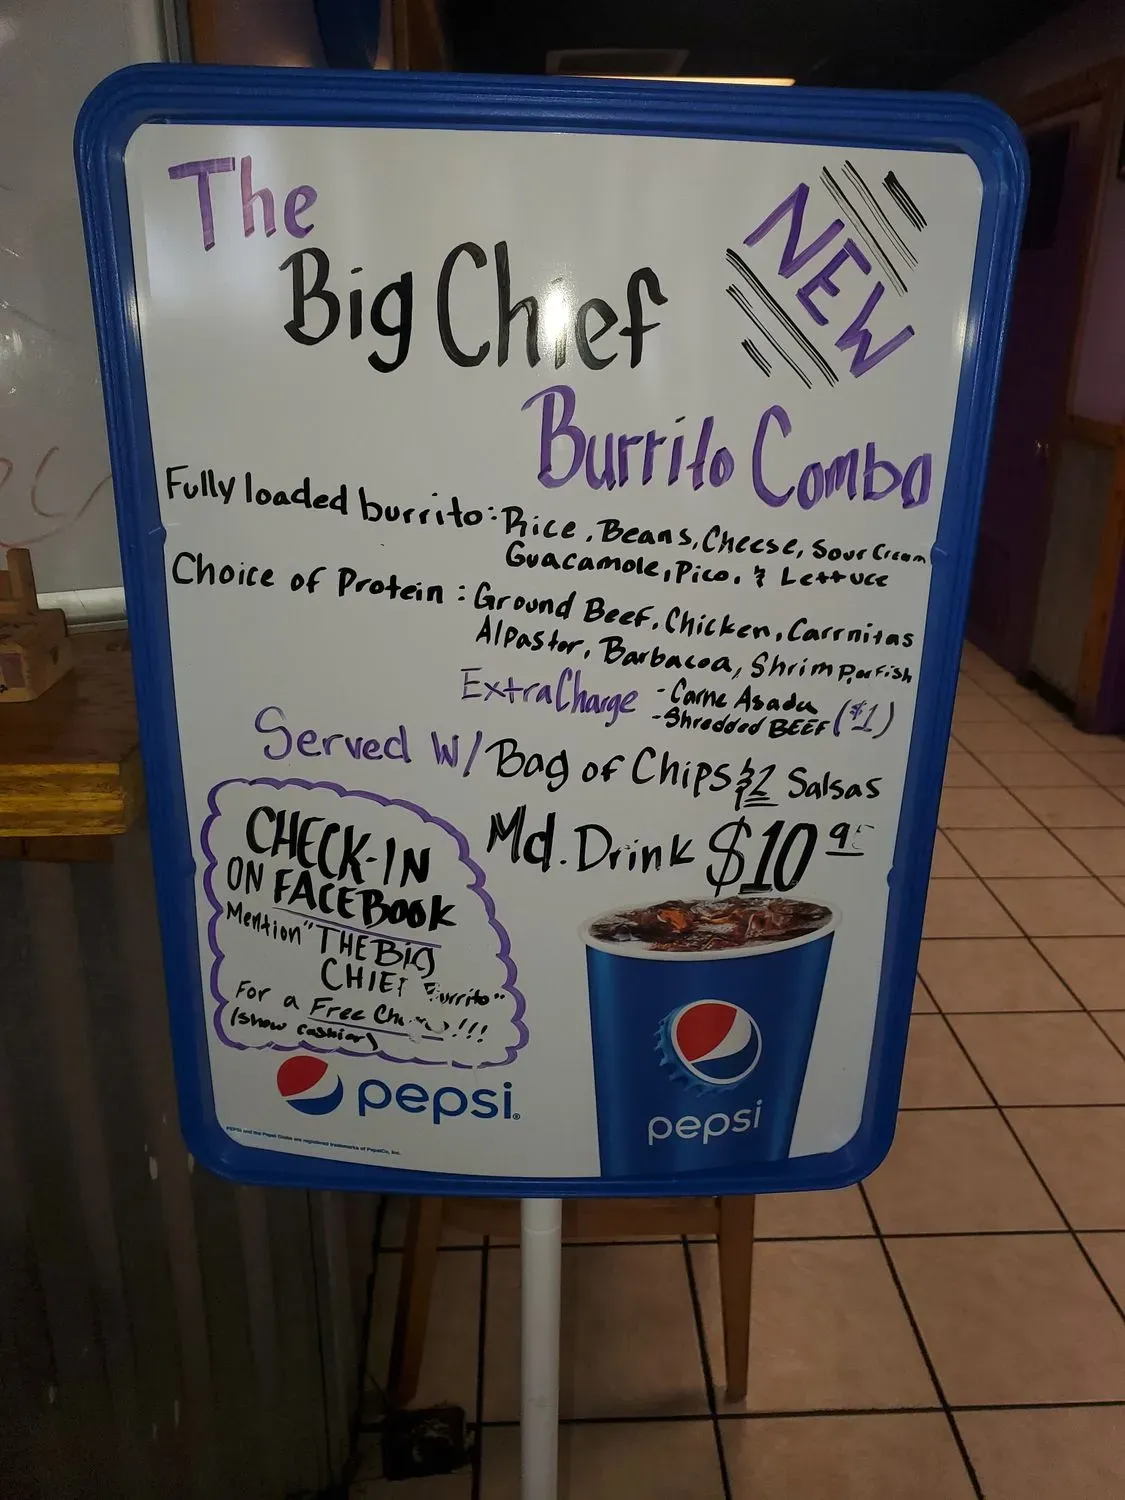 The
Big Chief
NEW
Burrito Combo
Fully loaded burrito: Rice, Beans, Cheese, Sour Cream
Guacamole, Pico, & Lettuce
Choice of Protein: Ground Beef, Chicken, Carrnitas
Alpastor, Barbacoa, Shrimp, or Fish
Extra Charge - Carne Asada ($1)
- Shredded BEEF
Served W/ Bag of Chips & 2 Salsas
Md. Drink $10
CHECK-IN
ON FACEBOOK
Mention "THE BiG
CHIEF Burrito"
For a Free !!!
(show cashier)
pepsi®
PEPSI and the Pepsi Globe are registered trademarks of PepsiCo, Inc.
pepsi